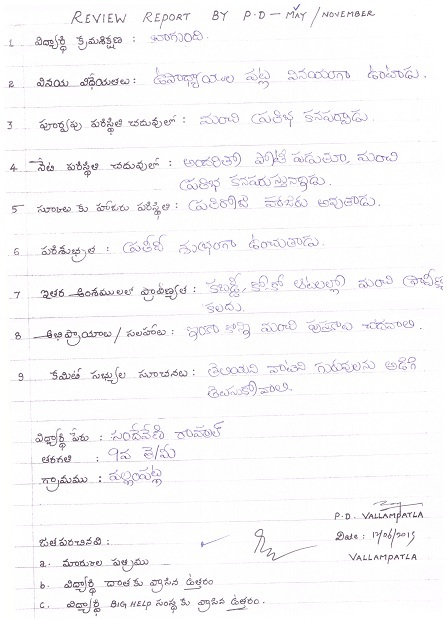 REVIEW REPORT BY P.D - MAY / NOVEMBER
1 విద్యార్థి క్రమశిక్షణ : బాగుంది.
2 వినయ విధేయతలు : ఉపాధ్యాయుల పట్ల వినయంగా ఉంటాడు.
3 పూర్వపు పరిస్థితి చదువులో : మంచి ప్రతిభ కనపర్చాడు.
4 నేటి పరిస్థితి చదువులో : అందరితో పోటీ పడుతూ, మంచి
ప్రతిభ కనపరుస్తున్నాడు.
5 స్కూలు కు హాజరు పరిస్థితి : ప్రతిరోజు హాజరు అవుతాడు.
6 పరిశుభ్రత : ప్రతీది శుభ్రంగా ఉంచుతాడు.
7 ఇతర అంశములలో ప్రావీణ్యత : కబడ్డీ, ఖో.ఖో ఆటలల్లో మంచి ప్రావీణ్య
కలదు.
8 అభిప్రాయాలు / సలహాలు : ఇంకా మంచి చదవాలి.
9 కమిటీ సభ్యుల సూచనలు : తెలియని వాటిని గురువులను అడిగి
తెలుసుకోవాలి.
విద్యార్థి పేరు : సందేవేణి రాహుల్
తరగతి : 9వ తె/మీ
గ్రామము : వల్లంపట్ల
P.D. VALLAMPATLA
జతపరచినవి :
Date : 12/06/2015
a. మార్కుల పత్రము
VALLAMPATLA
b. విద్యార్థి దాతకు వ్రాసిన ఉత్తరం
c. విద్యార్థి BIG HELP సంస్థ కు వ్రాసిన ఉత్తరం.